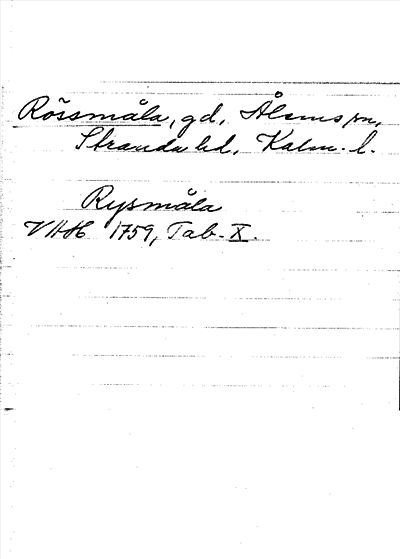 Rössmåla, gd, Ålems sn,
Stranda hd, Kalm. l.
Rysmåla
VHH 1759, Tab. X.